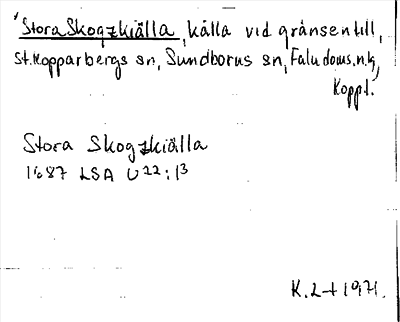 'Stora Skogzkiälla, källa vid gränsen till
St. Kopparbergs sn, Sundborns sn, Falu doms. n. tg,
Koppl.
Stora Skogzkiälla
1687 LSA U22:13
1971.